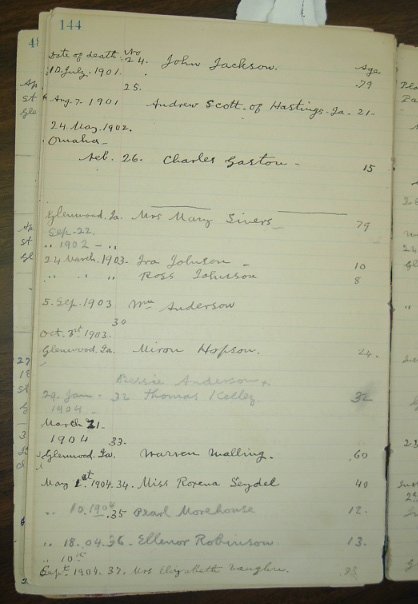 144
Date of death. No 24. John Jackson. Age
12 July. 1901. 79
25.
Aug. 7. 1901 Andrew Scott. of Hastings. Ia. 21
24 May. 1902.
Omaha
Neb. 26. Charles Gaston 15
Glenwood. Ia. Mrs Mary Sivers 79
Sep. 22.
" 1902 - "
24 March. 1903. Ira Johnson 10
" " " Ross Johnson 8
5. Sep. 1903 Mrs Anderson
30
Oct. 1903.
Glenwood. Ia. Miron Hopson. 24.
Bessie Anderson
29. Jan. 32 Thomas Kelley 32
1904
March 21.
1904 33.
Glenwood. Ia. Warren Walling. 60
May 1st 1904. 34. Miss Rorena Seydel 40
" 10. 1904 .35 Pearl Morehouse 12.
" 18. 04. 36. Ellenor Robinson 13.
" 10th
Sept. 1904. 37. Mrs Elizabeth Vaughn.